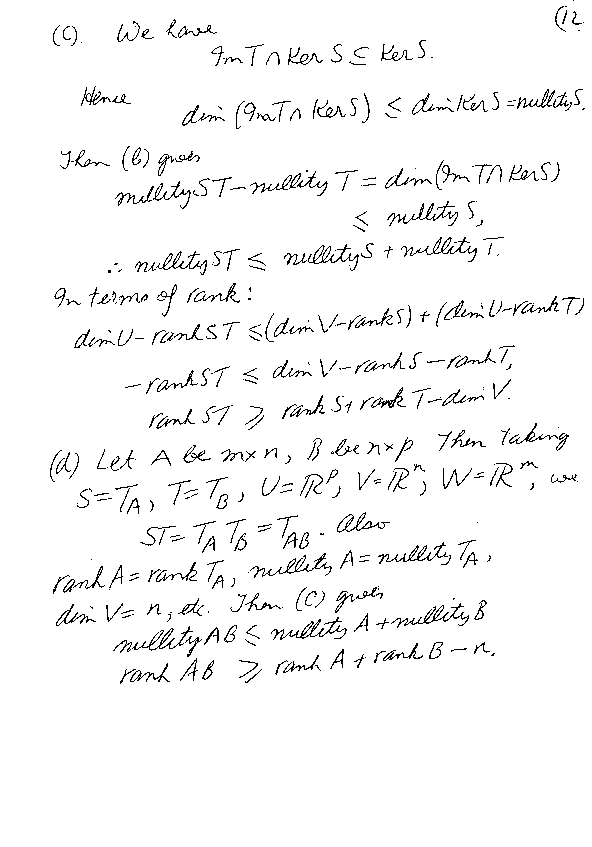 (12
(C). We have
Im T ∩ Ker S ⊆ Ker S.
Hence
dim (Im T ∩ Ker S) ≤ dim Ker S = nullity S.
Then (b) gives
nullity ST – nullity T = dim (Im T ∩ Ker S)
≤ nullity S,
∴ nullity ST ≤ nullity S + nullity T.
In terms of rank:
dim U – rank ST ≤ (dim V – rank S) + (dim U – rank T)
– rank ST ≤ dim V – rank S – rank T,
rank ST ≥ rank S + rank T – dim V.
(d) Let A be m×n, B be n×p Then taking
S = T_A, T = T_B, U = ℝ^p, V = ℝ^n, W = ℝ^m, we
ST = T_A T_B = T_AB. Also
rank A = rank T_A, nullity A = nullity T_A,
dim V = n, etc. Then (C) gives
nullity AB ≤ nullity A + nullity B
rank AB ≥ rank A + rank B – n.